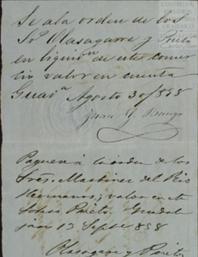 a la orden de los
Sres Olasagarre y Prieto
en liquidn de este comer
cio valor en cuenta
Guada Agosto 30/858
Paguese a la orden de los
Sres Martinez del Rio
Hermanos, valor en cta
Prieto. Guadal
jara 13 Sepbe 858
Olasagarre y Prieto